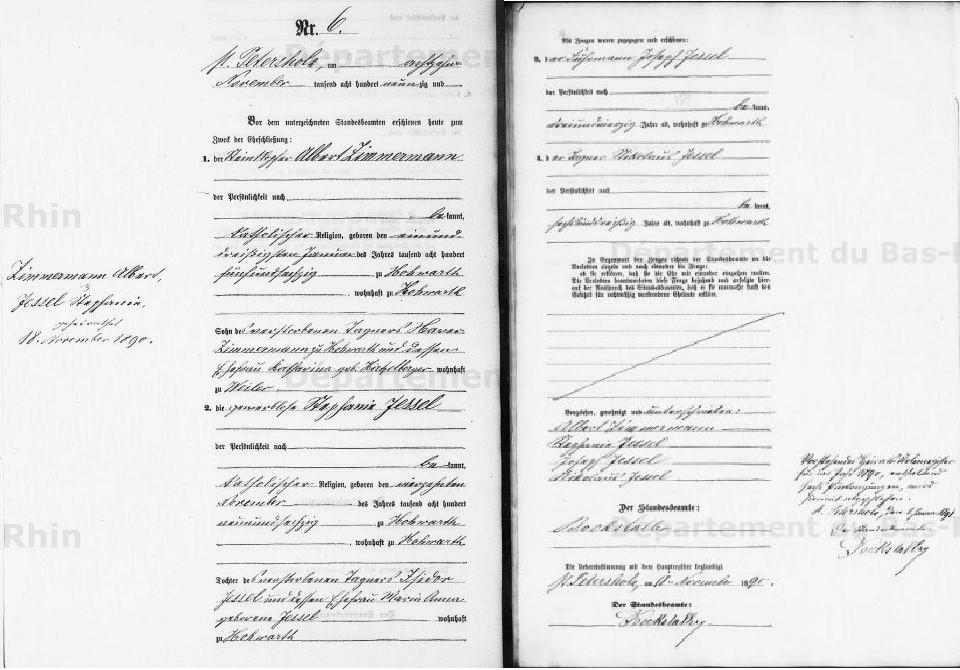 Nr. 6.
St. Petersholz, am achtzehn
November tausend acht hundert neunzig und
Vor dem unterzeichneten Standesbeamten erschienen heute zum
Zweck der Eheschließung:
1. der Steinklopfer Albert Zimmermann
der Persönlichkeit nach
be kannt,
katholischer Religion, geboren den einund-
dreißigsten Januar des Jahres tausend acht hundert
fünfundsechzig zu Hohwarth
, wohnhaft zu Hohwarth
Sohn des verstorbenen Tagners Xaver
Zimmermann zu Hohwarth und dessen
Ehefrau Katharina geb. wohnhaft
zu Weiler
2. die gewerblose Stephanie Jessel
der Persönlichkeit nach
be kannt,
katholischer Religion, geboren den vierzehnten
November des Jahres tausend acht hundert
neunundsechzig zu Hohwarth
, wohnhaft zu Hohwarth
Tochter des verstorbenen Tagners Isidor
Jessel und dessen Ehefrau Maria Anna
geborene Jessel wohnhaft
zu Hohwarth
Zimmermann Albert,
Jessel Stephanie,
geheirathet
18. November 1890.
Als Zeugen waren zugezogen und erschienen:
3. der Fuhrmann Joseph Jessel
der Persönlichkeit nach
be kannt,
dreiundvierzig Jahre alt, wohnhaft zu Hohwarth
4. der Tagner Nikolaus Jessel
der Persönlichkeit nach
be kannt,
sechsunddreißig Jahre alt, wohnhaft zu Hohwarth
In Gegenwart der Zeugen richtete der Standesbeamte an die
Verlobten einzeln und nach einander die Frage:
ob sie erklären, daß sie die Ehe mit einander eingehen wollen.
Die Verlobten beantworteten diese Frage bejahend und erfolgte hier-
auf der Ausspruch des Standesbeamten, daß er sie nunmehr kraft des
Gesetzes für rechtmäßig verbundene Eheleute erkläre.
Vorgelesen, genehmigt und unterschrieben:
Albert Zimmermann
Stephanie Jessel
Joseph Jessel
Nikolaus Jessel
Der Standesbeamte:
Die Uebereinstimmung mit dem Hauptregister beglaubigt
St. Petersholz, am 18. November 1890.
Der Standesbeamte:
Vorstehendes Heiraths Nebenregister
für das Jahr 1890, enthaltend
sechs Eintragungen, wird
hiermit abgeschlossen.
St. Petersholz, den Januar 1891
Der Standesbeamte
Rhin
Rhin
Rhin
Département
Département
Département
Département du Bas-R
Département du Bas-R